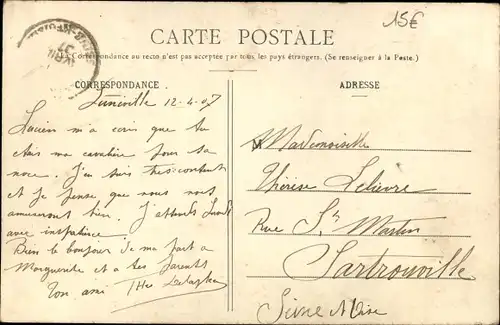 15€
CARTE POSTALE
La Correspondance au recto n'est pas acceptée par tous les pays étrangers. (Se renseigner à la Poste.)
CORRESPONDANCE
ADRESSE
Lunéville 12-4-07
Lucien m'a écris que tu
étais ma cavalière pour sa
noce. J'en suis très-content
et je pense que nous nous
amuserons bien. J'attends Lundi
avec impatience
Bien le bonjour de ma part a
Marguerite et a tes parents
Ton ami
Mademoiselle
Thérèse Lelièvre
Rue St Martin
Sartrouville
Seine et Oise